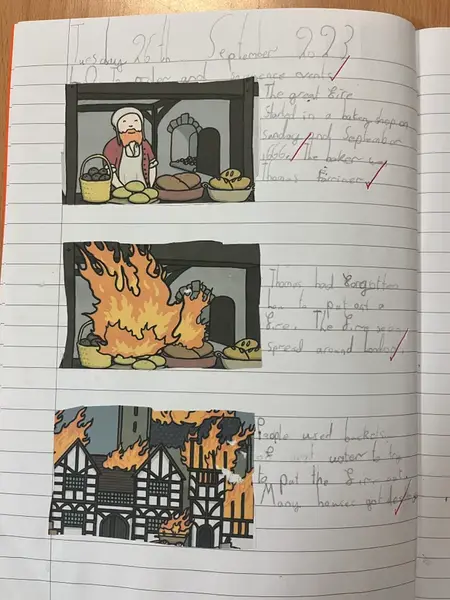 Tuesday 26th September 2023
L.O. to order and sequence events
The great fire
started in a baking shop on
Sunday 2nd September
1666. The baker was
Thomas Farriner.
Thomas had forgotten
to put out a
fire. The fire
spread around london
People used buckets
of water to try
to put the fire out.
Many houses got